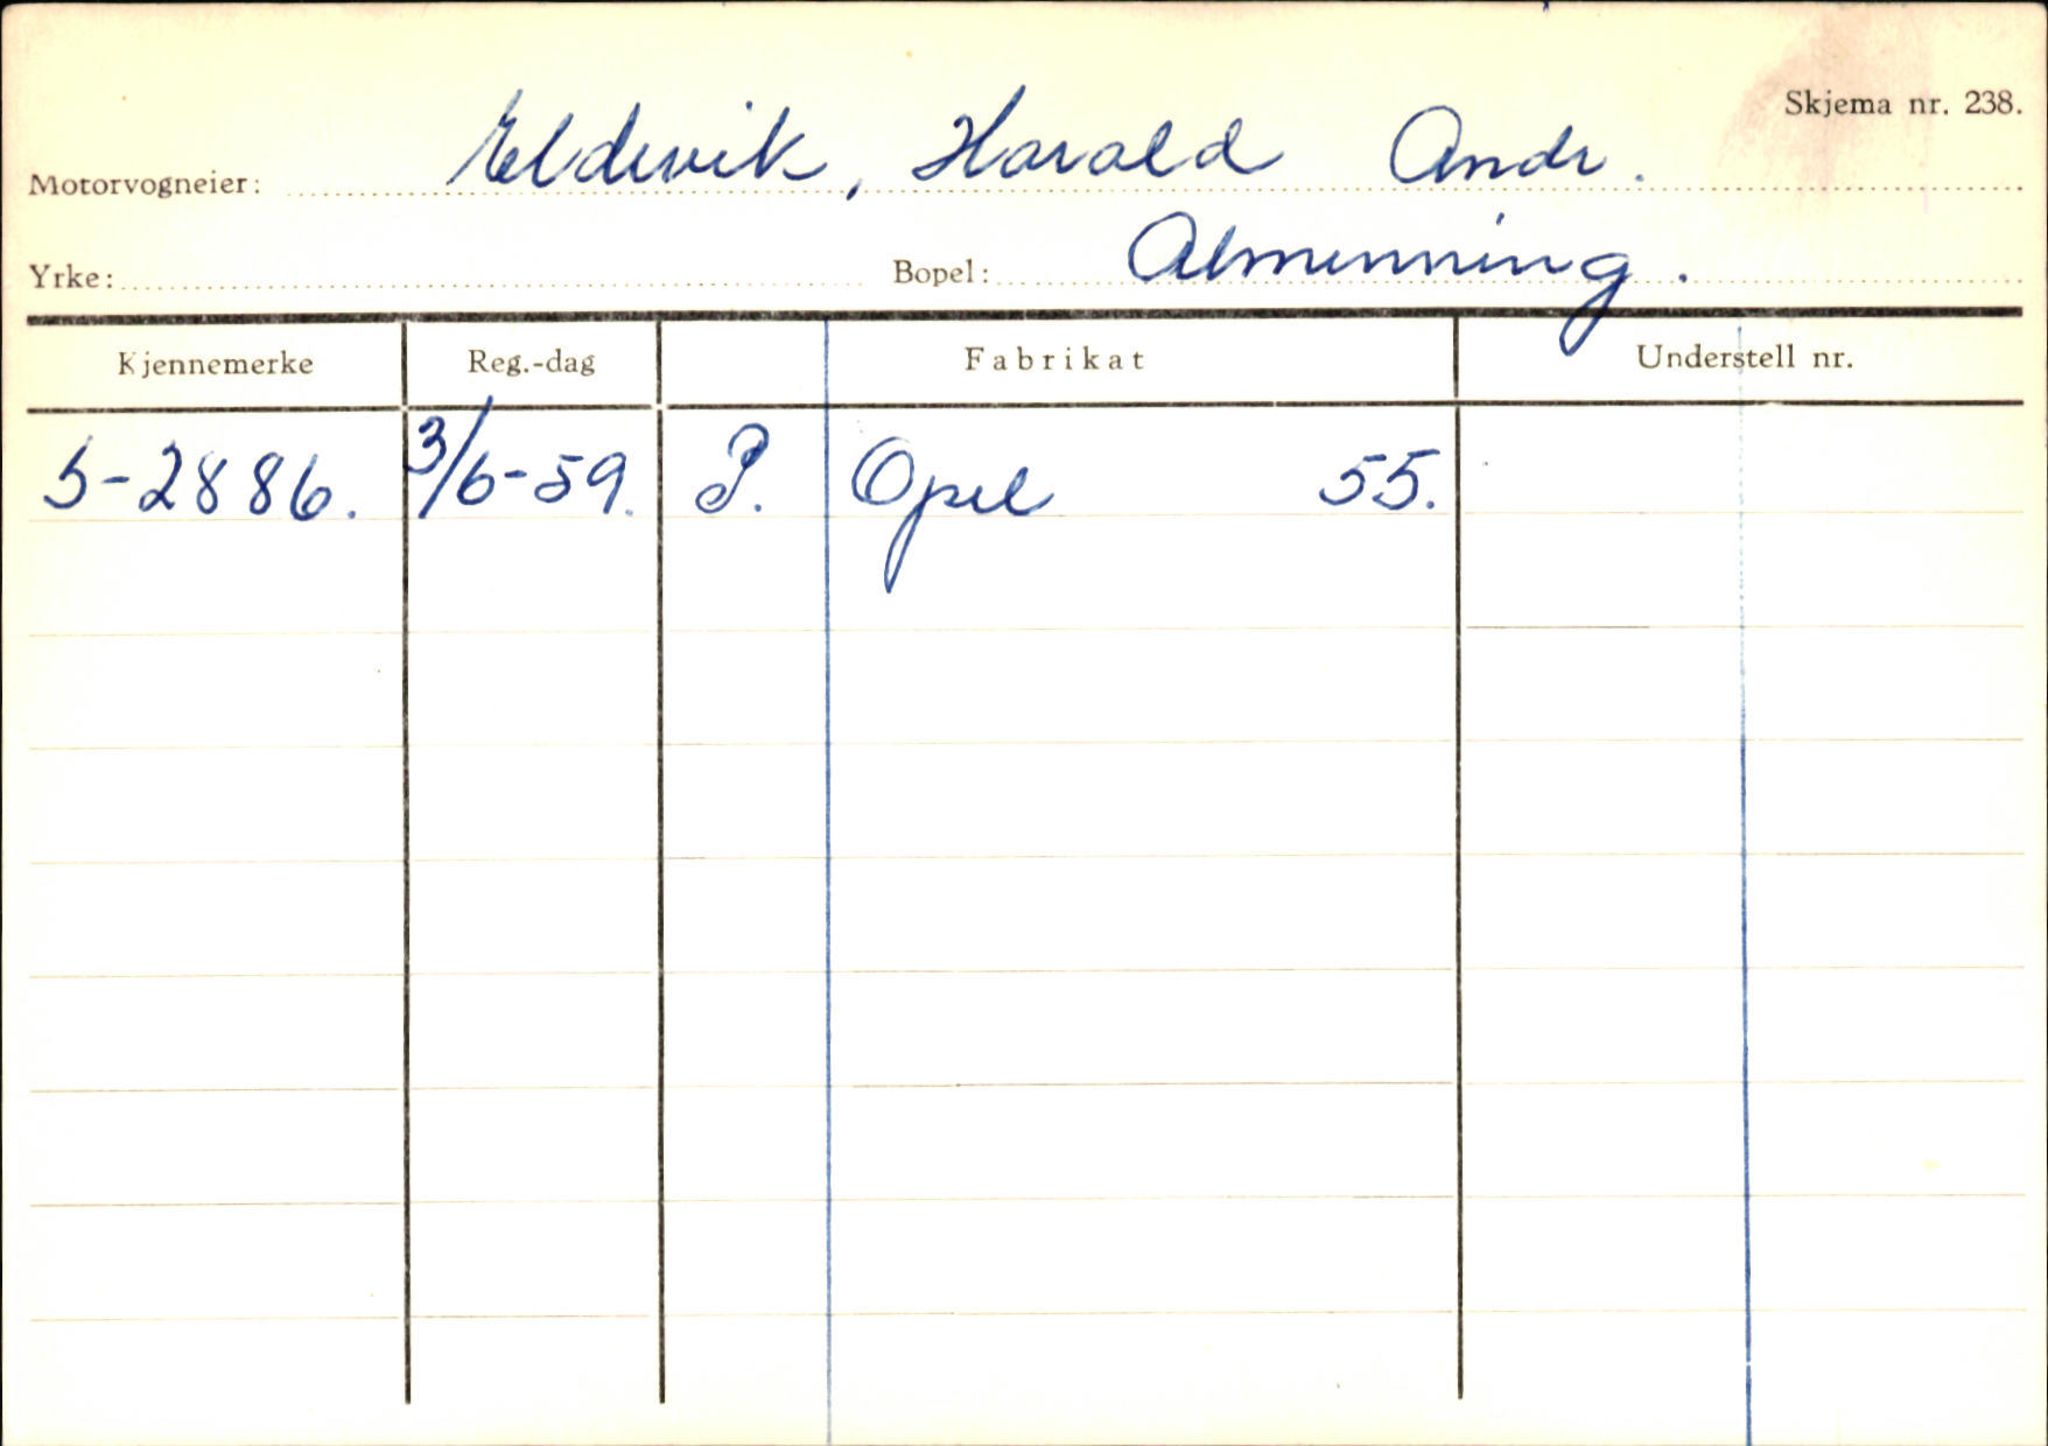 Skjema nr. 238.
Motorvogneier: Eldevik, Harald Andr.
Yrke: Bopel: Almenning.
Kjennemerke Reg.-dag Fabrikat Understell nr.
S-2886. 3/6-59. P. Opel 55.